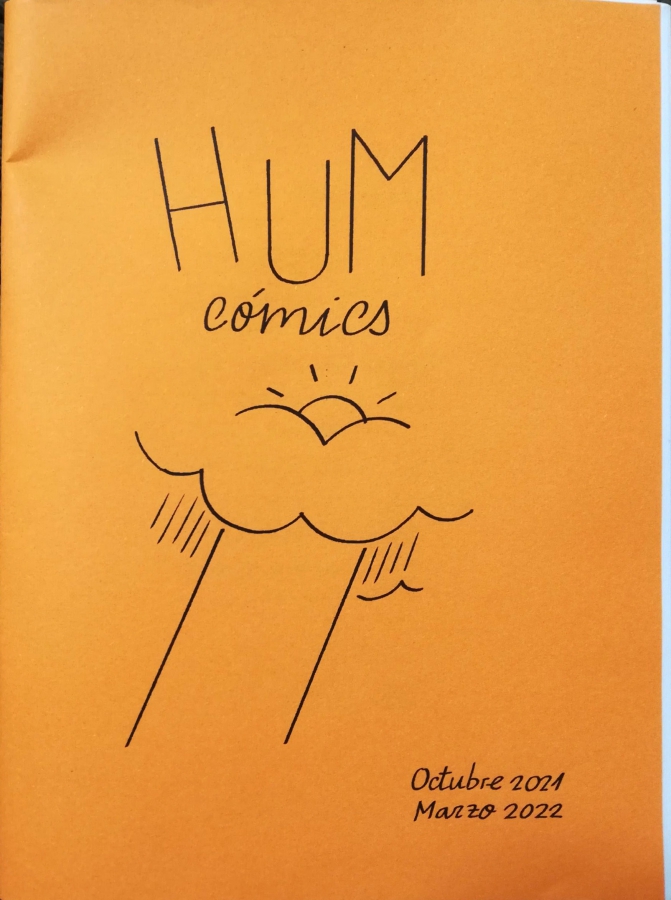 HUM
cómics
Octubre 2021
Marzo 2022